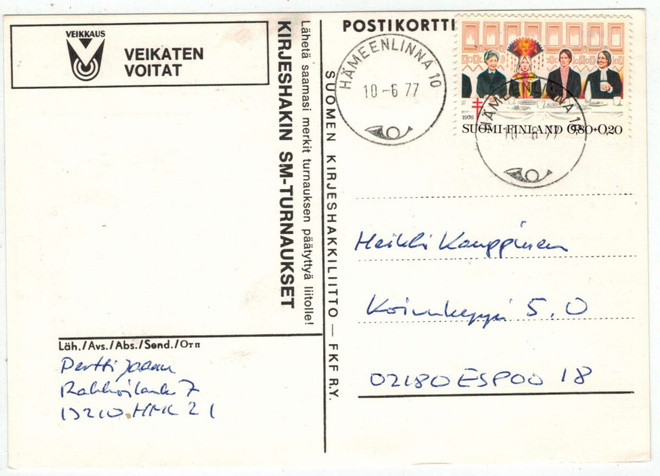 VEIKKAUS
VEIKATEN
VOITAT
Lähetä saamasi merkit turnauksen päätyttyä liitolle!
KIRJESHAKIN SM-TURNAUKSET
SUOMEN KIRJESHAKKILIITTO — FKF R.Y.
POSTIKORTTI
HÄMEENLINNA 10
10-6 77
1976
SUOMI-FINLAND 0,80+0,20
HÄMEENLINNA 10
10-6 77
Heikki Kauppinen
5.O
02180 ESPOO 18
Läh./Avs./Abs./Send./Отп
Pertti
7
13210 HML 21